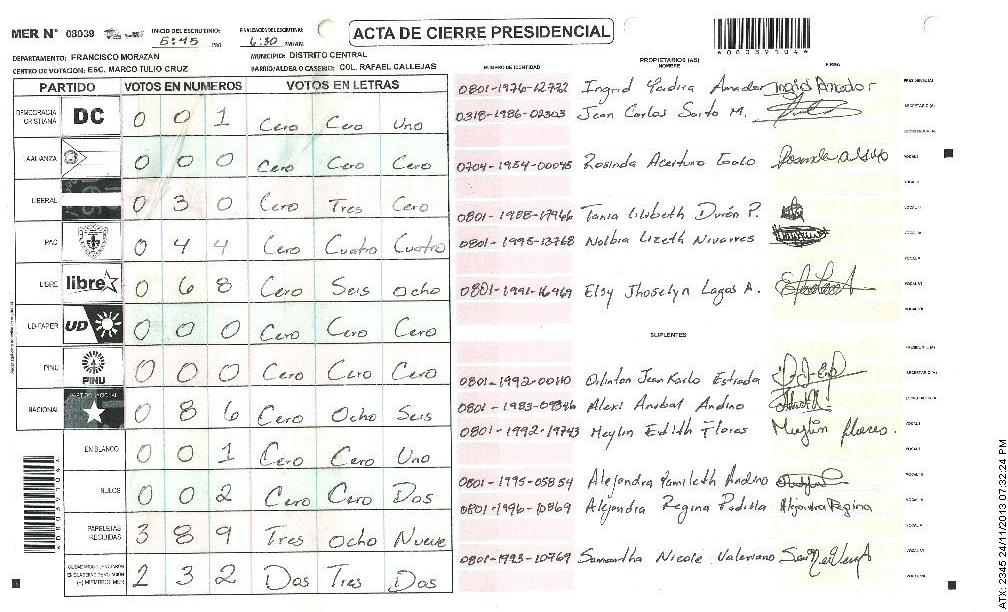 MER N° 08039 INICIO DEL ESCRUTINIO: 5:45 PM FINALIZACION DEL ESCRUTINIO: 6:30 PM/AM
ACTA DE CIERRE PRESIDENCIAL
DEPARTAMENTO: FRANCISCO MORAZAN MUNICIPIO: DISTRITO CENTRAL
CENTRO DE VOTACION: ESC. MARCO TULIO CRUZ BARRIO/ALDEA O CASERIO: COL. RAFAEL CALLEJAS
PARTIDO VOTOS EN NUMEROS VOTOS EN LETRAS
DEMOCRACIA CRISTIANA DC 0 0 1 Cero Cero Uno
LA ALIANZA 0 0 0 Cero Cero Cero
LIBERAL 0 3 0 Cero Tres Cero
PAC 0 4 4 Cero Cuatro Cuatro
LIBRE libre 0 6 8 Cero Seis Ocho
UD-FAPER UD 0 0 0 Cero Cero Cero
PINU PINU 0 0 0 Cero Cero Cero
NACIONAL 0 8 6 Cero Ocho Seis
EN BLANCO 0 0 1 Cero Cero Uno
NULOS 0 0 2 Cero Cero Dos
PAPELETAS RECIBIDAS 3 8 9 Tres Ocho Nueve
2 3 2 Dos Tres Dos
NUMERO DE IDENTIDAD PROPIETARIOS (AS) NOMBRE FIRMA
0801-1976-12772 Ingrid Yadira Amador Ingrid Amador PRESIDENTE(A)
0318-1986-02303 Jean Carlos Sorto M. SECRETARIO(A)
0704-1954-00045 Rosinda Aceituno VOCAL I
0801-1988-17966 Tania Lizbeth Durón P.
0801-1995-13768 Nolbia Lizeth Nivarres
0801-1991-16969 Elsy Jhoselyn Lagos A.
SUPLENTES
0801-1992-00110 Orlinton Jean Karlo Estrada
Alexi Anibal Andino
0801-1992-19743 Meylin Edith Flores Meylin flores.
0801-1995-05854 Alejandra Yamileth Andino
0801-1996-10869 Alejandra Regina Padilla Alejandra Regina
0801-1993-10769 Samantha Nicole Valeriano
ATX: 2345 24/11/2013 07:32:24 PM